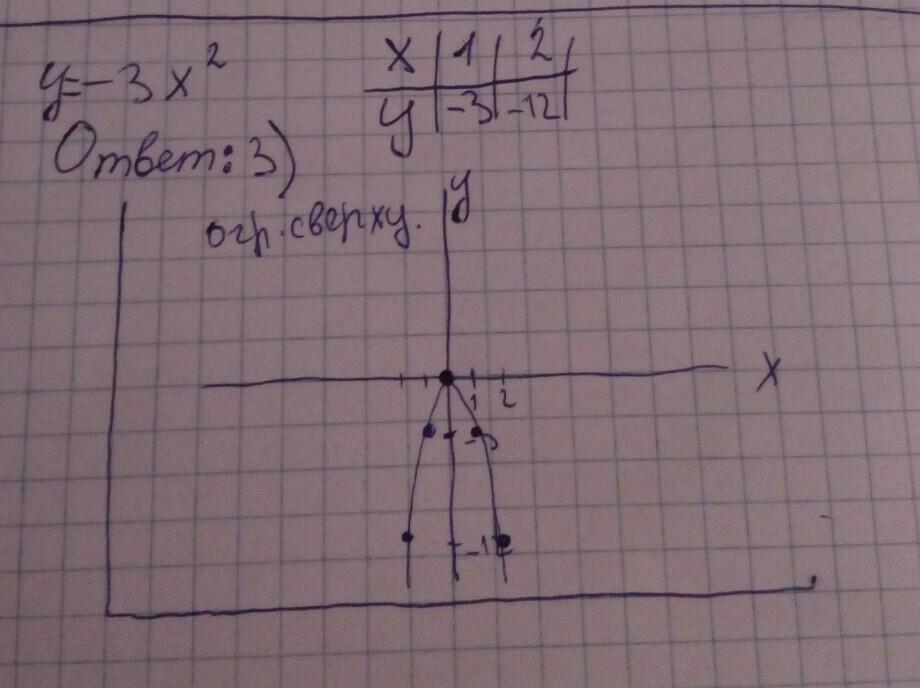 y=-3x²
x | 1 | 2 |
y | -3 | -12 |
Ответ: 3)
огр. сверху.
y
x
1 2
-3
-12